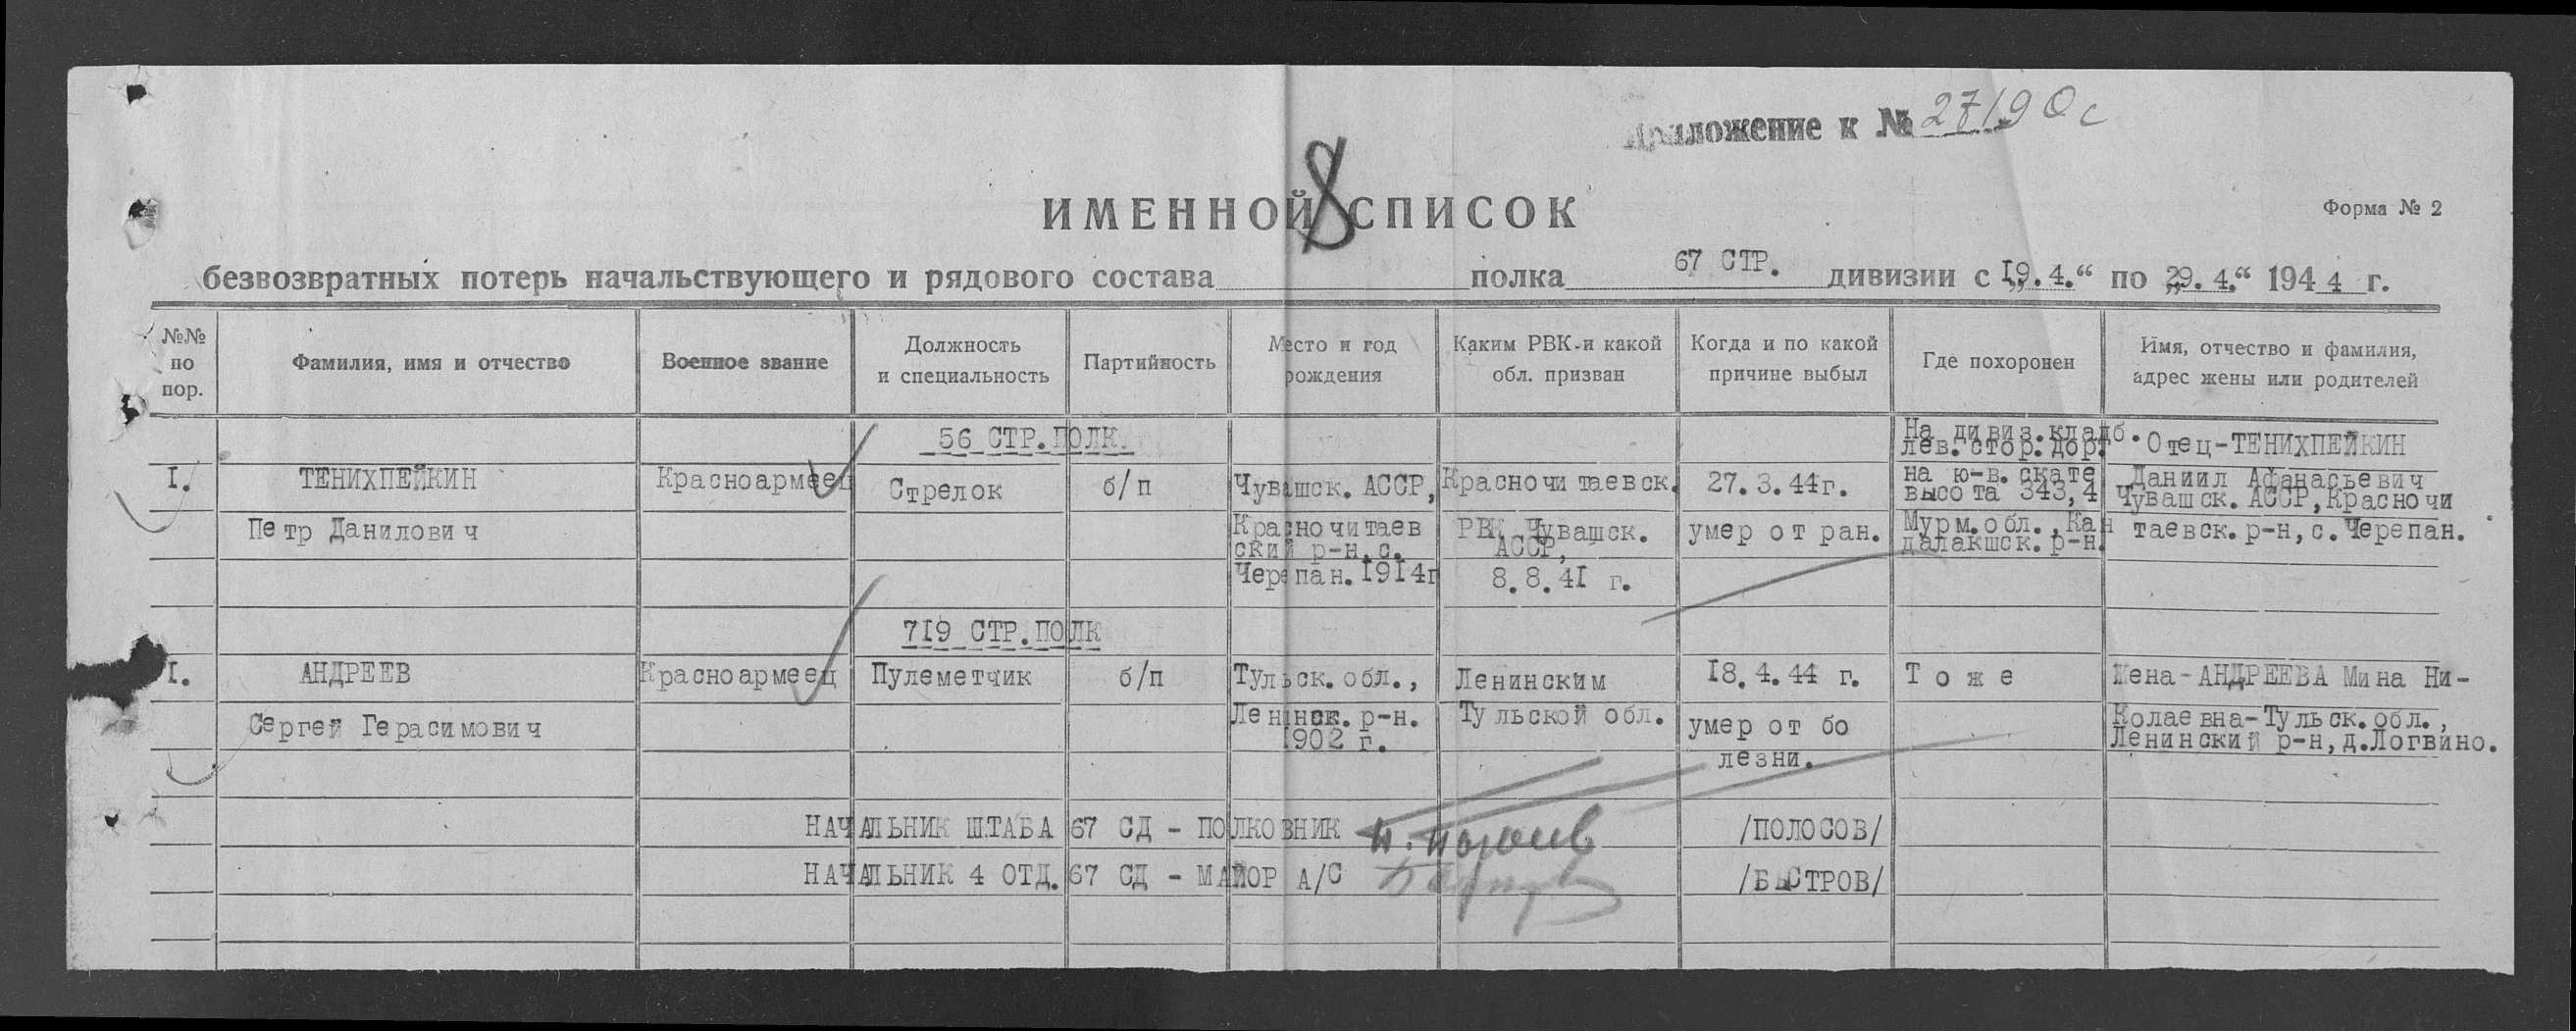 Приложение к № 27190с
8
ИМЕННОЙ СПИСОК
Форма № 2
безвозвратных потерь начальствующего и рядового состава полка 67 СТР. дивизии с „19.4.“ по „29.4.“ 1944 г.
№№ по пор.
Фамилия, имя и отчество
Военное звание
Должность и специальность
Партийность
Место и год рождения
Каким РВК и какой обл. призван
Когда и по какой причине выбыл
Где похоронен
Имя, отчество и фамилия, адрес жены или родителей
56 СТР.ПОЛК.
I.
ТЕНИХПЕЙКИН
Петр Данилович
Красноармеец
Стрелок
б/п
Чувашск. АССР,
Красночитаев
ский р-н, с.
Черепан. I9I4г
Красночитаевск.
РВК Чувашск.
АССР,
8.8.4I г.
27.3.44г.
умер от ран.
На дивиз.кладб.
лев.стор.дор.
на ю-в. скате
высота 343,4
Мурм.обл.,Кан
далакшск. р-н.
Отец-ТЕНИХПЕЙКИН
Даниил Афанасьевич
Чувашск. АССР,Красночи
таевск. р-н, с.Черепан.
7I9 СТР.ПОЛК
I.
АНДРЕЕВ
Сергей Герасимович
Красноармеец
Пулеметчик
б/п
Тульск.обл.,
Ленинск. р-н.
I902 г.
Ленинским
Тульской обл.
I8.4.44 г.
умер от бо
лезни.
Т о ж е
Жена-АНДРЕЕВА Мина Ни-
колаевна-Тульск.обл.,
Ленинский р-н,д.Логвино.
НАЧАЛЬНИК ШТАБА 67 СД - ПОЛКОВНИК /ПОЛОСОВ/
НАЧАЛЬНИК 4 ОТД. 67 СД - МАЙОР А/С /БЫСТРОВ/